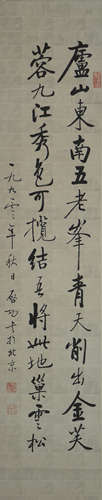 廬山東南五老峯青天削出金芙
蓉九江秀色可攬結吾將此地巢雲松
一九八零年秋日啟功書於北京